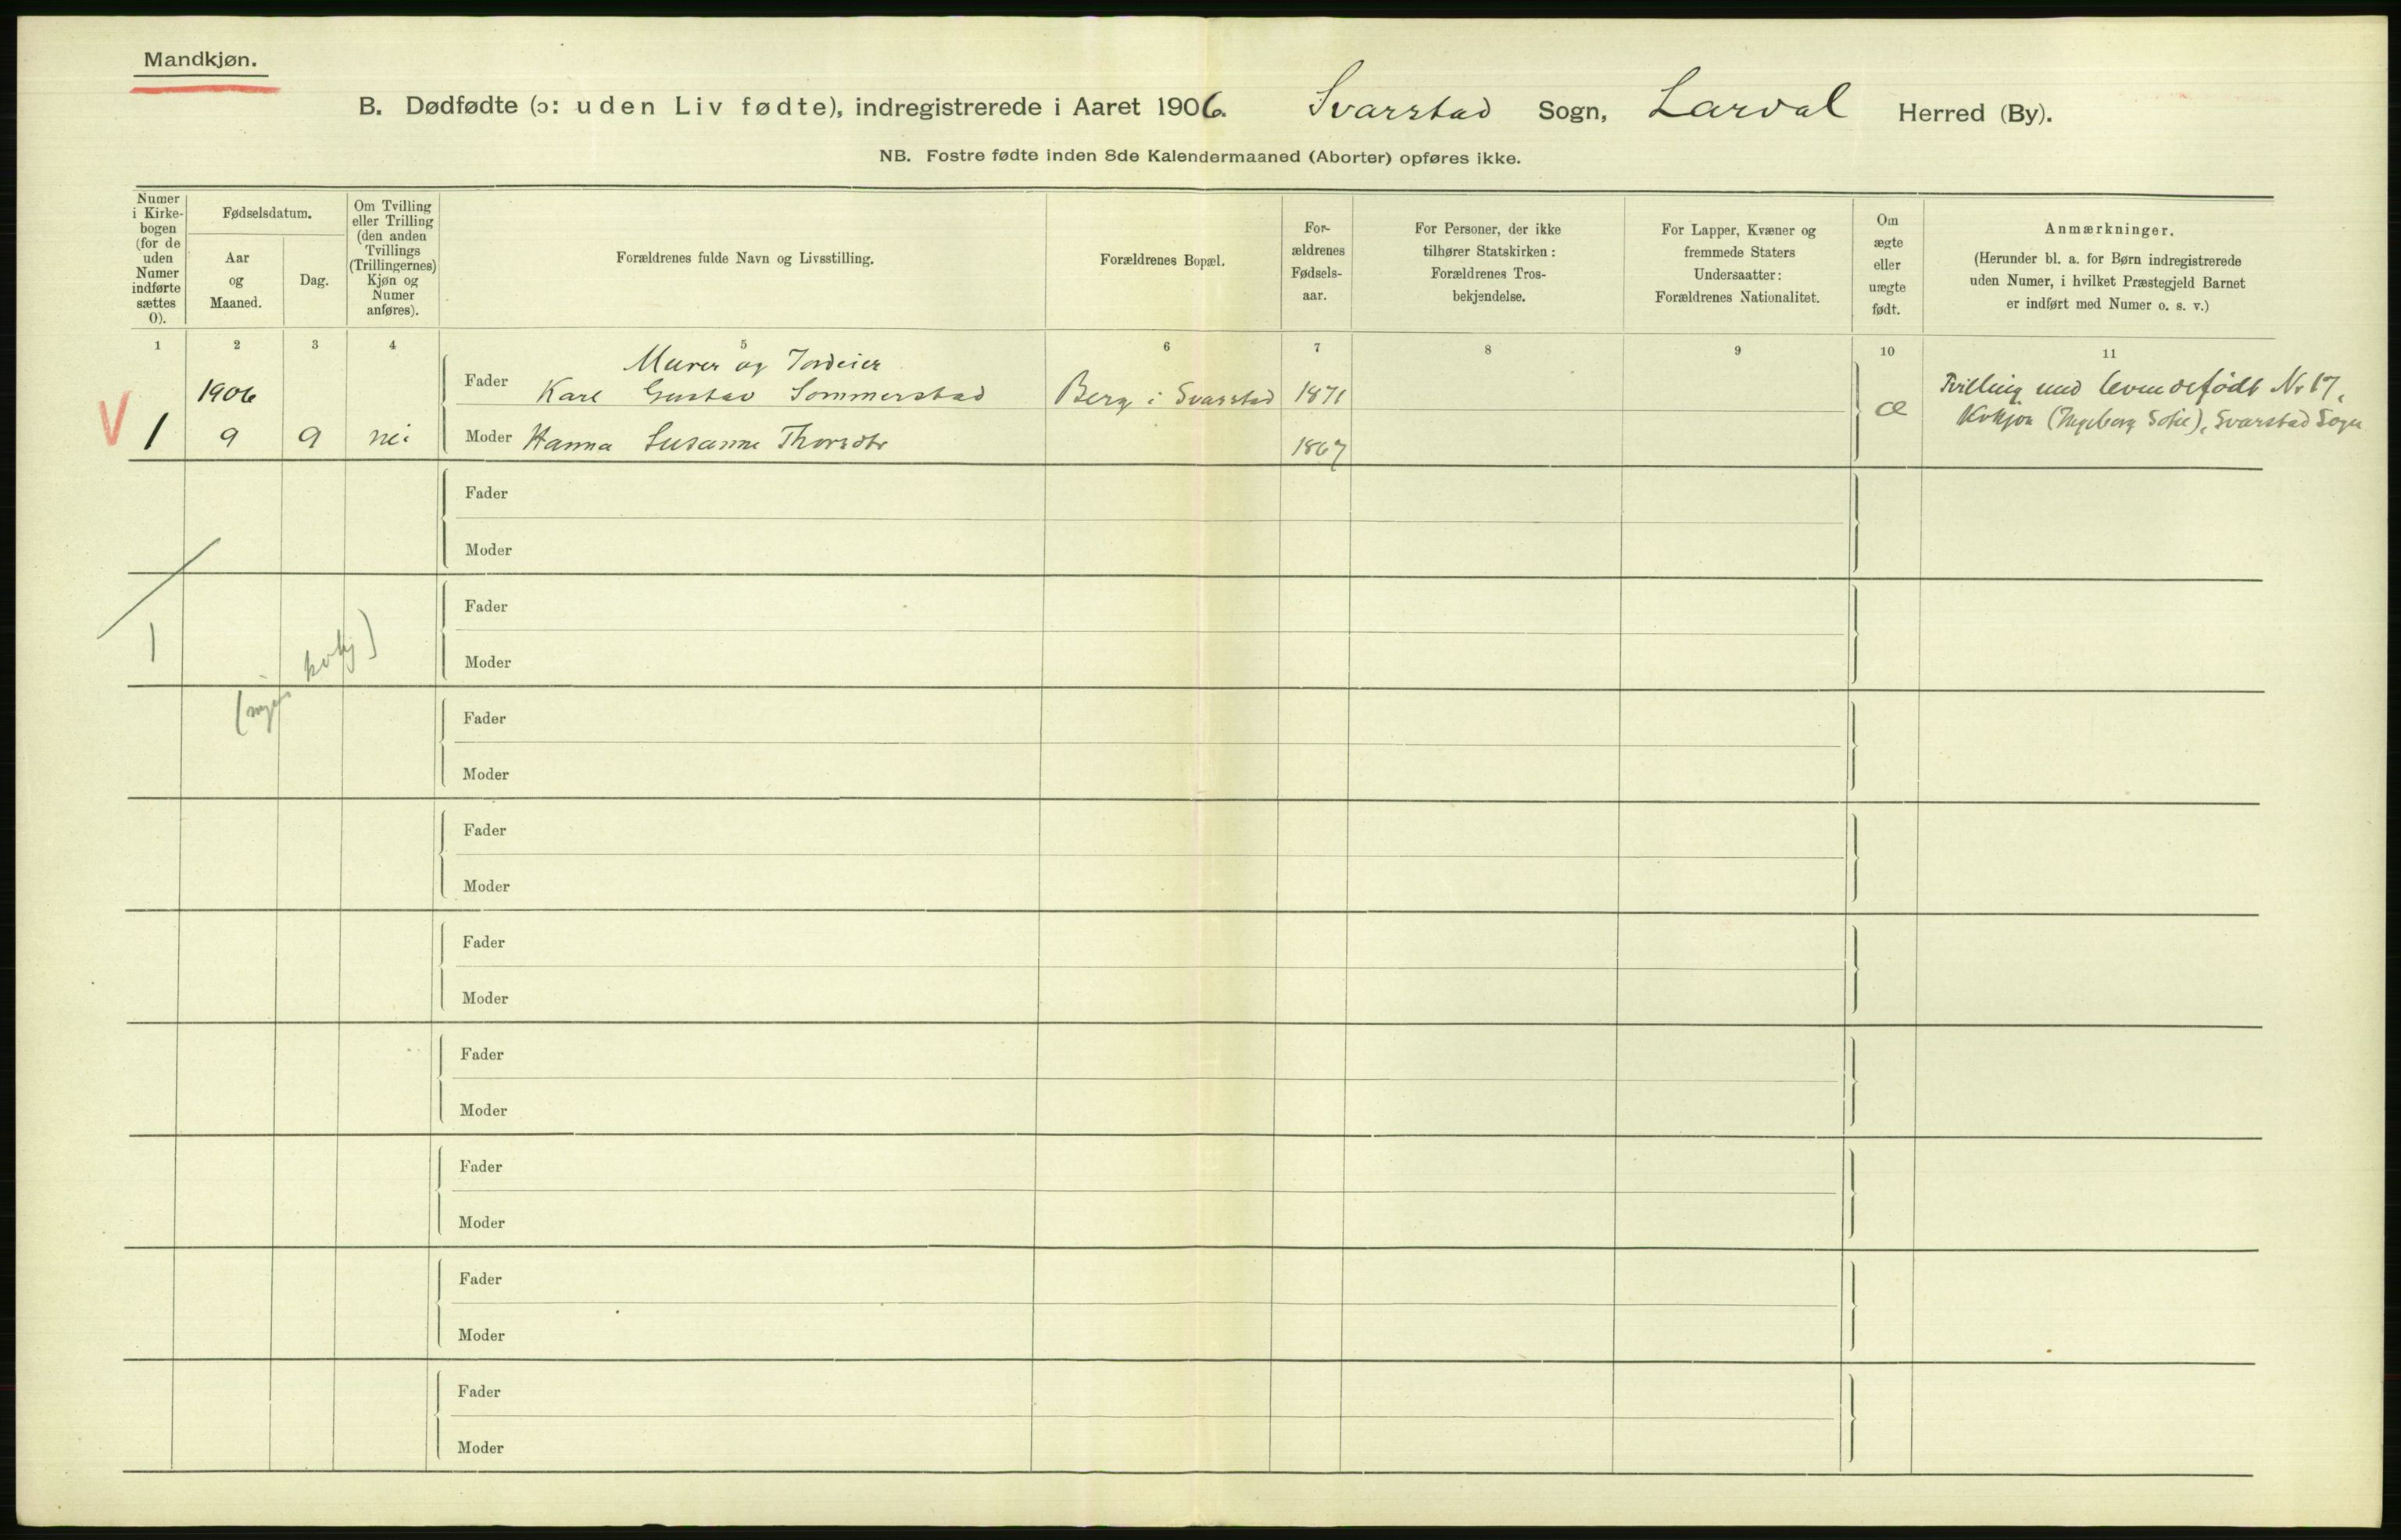 Mandkjøn.
B. Dødfødte (ɔ: uden Liv fødte), indregistrerede i Aaret 1906. Svarstad Sogn, Larval Herred (By).
NB. Fostre fødte inden 8de Kalendermaaned (Aborter) opføres ikke.
Numer
i Kirke-
bogen
(for de
uden
Numer
indførte
sættes
0).
Fødselsdatum.
Aar
og
Maaned.
Dag.
Om Tvilling
eller Trilling
(den anden
Tvillings
(Trillingernes)
Kjøn og
Numer
anføres).
Forældrenes fulde Navn og Livsstilling.
Forældrenes Bopæl.
For-
ældrenes
Fødsels-
aar.
For Personer, der ikke
tilhører Statskirken:
Forældrenes Tros-
bekjendelse.
For Lapper, Kvæner og
fremmede Staters
Undersaatter:
Forældrenes Nationalitet.
Om
ægte
eller
uægte
født.
Anmærkninger.
(Herunder bl. a. for Børn indregistrerede
uden Numer, i hvilket Præstegjeld Barnet
er indført med Numer o. s. v.)
1 2 3 4 5 6 7 8 9 10 11
Murer og Jordeier
1906 Fader Karl Gustav Sommerstad Berg i Svarstad 1871
V 1 9 9 nei Moder Hanna Susanne Thorsdtr 1867
æ
Tvilling med levendefødt Nr 17,
Kvkjøn (Ingeborg Sofie), Svarstad Sogn
Fader
Moder
Fader
1
Moder
kvkj)
Fader
Moder
Fader
Moder
Fader
Moder
Fader
Moder
Fader
Moder
Fader
Moder
Fader
Moder